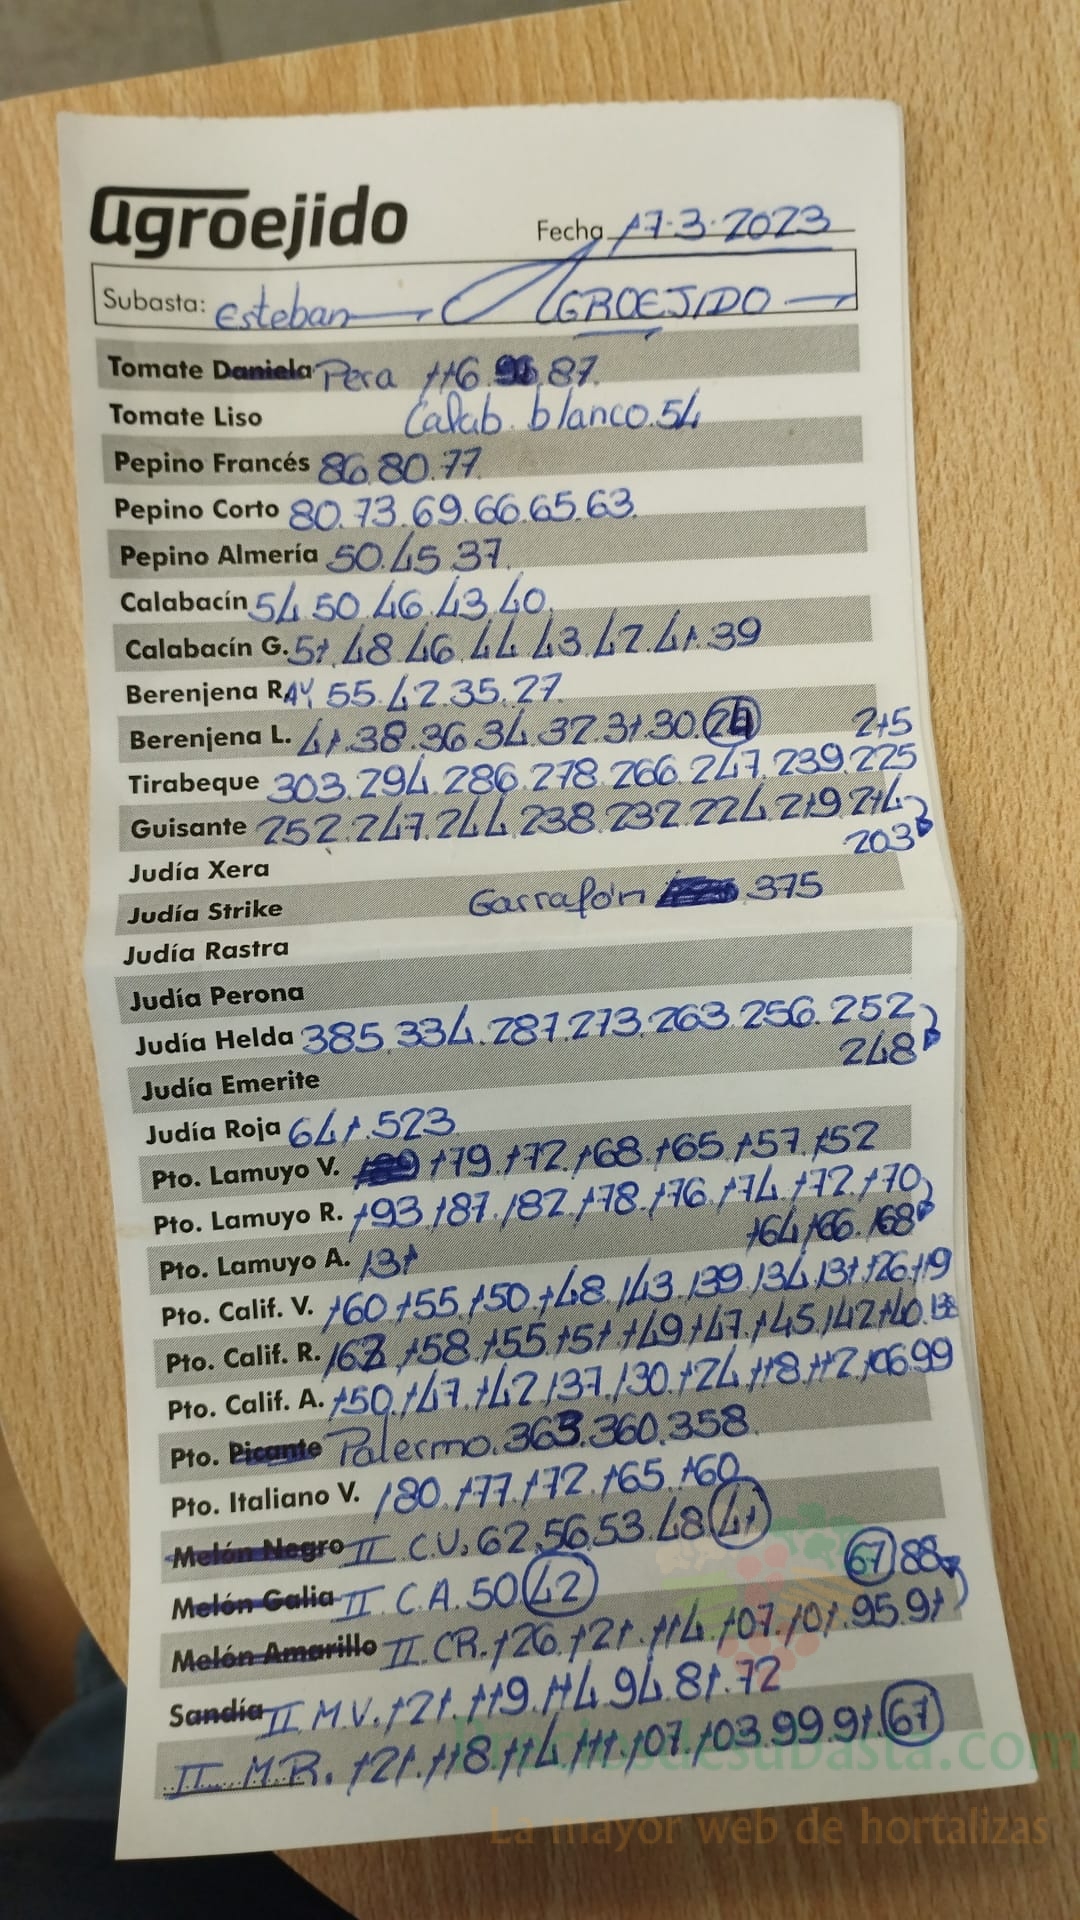 agroejido
Fecha 17-3-2023
Subasta: Esteban AGROEJIDO
Tomate Daniela Pera 116. 87.
Tomate Liso Calab. blanco. 54
Pepino Francés 86. 80. 77.
Pepino Corto 80. 73. 69. 66. 65. 63.
Pepino Almería 50. 45. 37.
Calabacín 54. 50. 46. 43. 40.
Calabacín G. 51. 48. 46. 44. 43. 42. 41. 39
Berenjena RAY 55. 42. 35. 27.
Berenjena L. 41. 38. 36. 34. 32. 31. 30. 24
215
Tirabeque 303. 294. 286. 278. 266. 247. 239. 225
Guisante 252. 247. 244. 238. 232. 224. 219. 214
203
Judía Xera
Judía Strike Garrafón 375
Judía Rastra
Judía Perona
Judía Helda 385. 334. 287. 273. 263. 256. 252
248
Judía Emerite
Judía Roja 641. 523.
Pto. Lamuyo V. 179. 172. 168. 165. 157. 152
Pto. Lamuyo R. 193. 187. 182. 178. 176. 174. 172. 170
164. 166. 168
Pto. Lamuyo A. 131
Pto. Calif. V. 160. 155. 150. 148. 143. 139. 134. 131. 126. 119
Pto. Calif. R. 162. 158. 155. 151. 149. 147. 145. 142. 140. 138
Pto. Calif. A. 150. 147. 142. 137. 130. 124. 118. 112. 106. 99
Pto. Picante Palermo. 363. 360. 358.
Pto. Italiano V. 180. 177. 172. 165. 160
Melón Negro II C.V. 62. 56. 53. 48 41
67 88
Melón Galia II. C.A. 50 42
Melón Amarillo II. CR. 126. 121. 114. 107. 101. 95. 91
Sandía II M.V. 121. 119. 114. 94. 81. 72
II M.R. 121. 118. 114. 111. 107. 103. 99. 91. 67
La mayor web de hortalizas